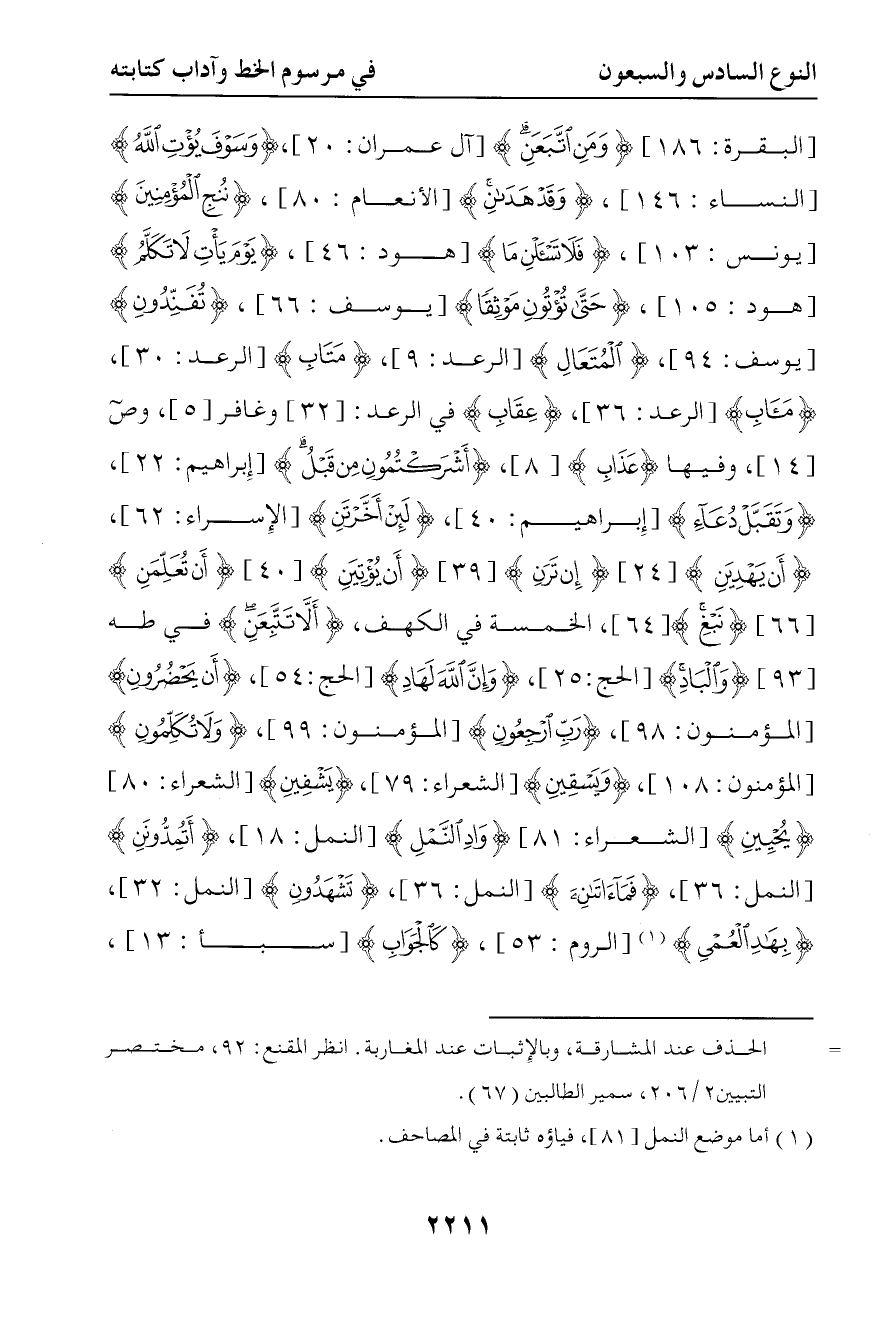 النوع السادس والسبعون في مرسوم الخط وآداب كتابته
[البقرة: ١٨٦] ﴿وَمَنِ ٱتَّبَعَنِۗ﴾ [آل عمران: ٢٠]، ﴿وَسَوۡفَ يُؤۡتِ ٱللَّهُ﴾
[النساء: ١٤٦]، ﴿وَقَدۡ هَدَىٰنِۚ﴾ [الأنعام: ٨٠]، ﴿نُنجِ ٱلۡمُؤۡمِنِينَ﴾
[يونس: ١٠٣]، ﴿فَلَا تَسۡـَٔلۡنِ مَا﴾ [هود: ٤٦]، ﴿يَوۡمَ يَأۡتِ لَا تَكَلَّمُ﴾
[هود: ١٠٥]، ﴿حَتَّىٰ تُؤۡتُونِ مَوۡثِقٗا﴾ [يوسف: ٦٦]، ﴿تُفَنِّدُونِ﴾
[يوسف: ٩٤]، ﴿ٱلۡمُتَعَالِ﴾ [الرعد: ٩]، ﴿مَتَابِ﴾ [الرعد: ٣٠]،
﴿مَـَٔابِ﴾ [الرعد: ٣٦]، ﴿عِقَابِ﴾ في الرعد: [٣٢] وغافر [٥]، وصٓ
[١٤]، وفيها ﴿عَذَابِ﴾ [٨]، ﴿أَشۡرَكۡتُمُونِ مِن قَبۡلُۗ﴾ [إبراهيم: ٢٢]،
﴿وَتَقَبَّلۡ دُعَآءِ﴾ [إبراهيم: ٤٠]، ﴿لَئِنۡ أَخَّرۡتَنِ﴾ [الإسراء: ٦٢]،
﴿أَن يَهۡدِيَنِ﴾ [٢٤] ﴿إِن تَرَنِ﴾ [٣٩] ﴿أَن يُؤۡتِيَنِ﴾ [٤٠] ﴿أَن تُعَلِّمَنِ﴾
[٦٦] ﴿نَبۡغِۚ﴾ [٦٤]، الخمسة في الكهف، ﴿أَلَّا تَتَّبِعَنِۖ﴾ في طه
[٩٣] ﴿وَٱلۡبَادِۚ﴾ [الحج: ٢٥]، ﴿وَإِنَّ ٱللَّهَ لَهَادِ﴾ [الحج: ٥٤]، ﴿أَن يَحۡضُرُونِ﴾
[المؤمنون: ٩٨]، ﴿رَبِّ ٱرۡجِعُونِ﴾ [المؤمنون: ٩٩]، ﴿وَلَا تُكَلِّمُونِ﴾
[المؤمنون: ١٠٨]، ﴿وَيَسۡقِينِ﴾ [الشعراء: ٧٩]، ﴿يَشۡفِينِ﴾ [الشعراء: ٨٠]
﴿يُحۡيِينِ﴾ [الشعراء: ٨١] ﴿وَادِ ٱلنَّمۡلِ﴾ [النمل: ١٨]، ﴿أَتُمِدُّونَنِ﴾
[النمل: ٣٦]، ﴿فَمَآ ءَاتَىٰنِۦَ﴾ [النمل: ٣٦]، ﴿تَشۡهَدُونِ﴾ [النمل: ٣٢]،
﴿بِهَٰدِ ٱلۡعُمۡيِ﴾ (١) [الروم: ٥٣]، ﴿كَٱلۡجَوَابِ﴾ [سبأ: ١٣]،
= الحذف عند المشارقة، وبالإثبات عند المغاربة. انظر المقنع: ٩٢، مختصر
التبيين ٢/ ٢٠٦، سمير الطالبين (٦٧).
(١) أما موضع النمل [٨١]، فياؤه ثابتة في المصاحف.
٢٢١١